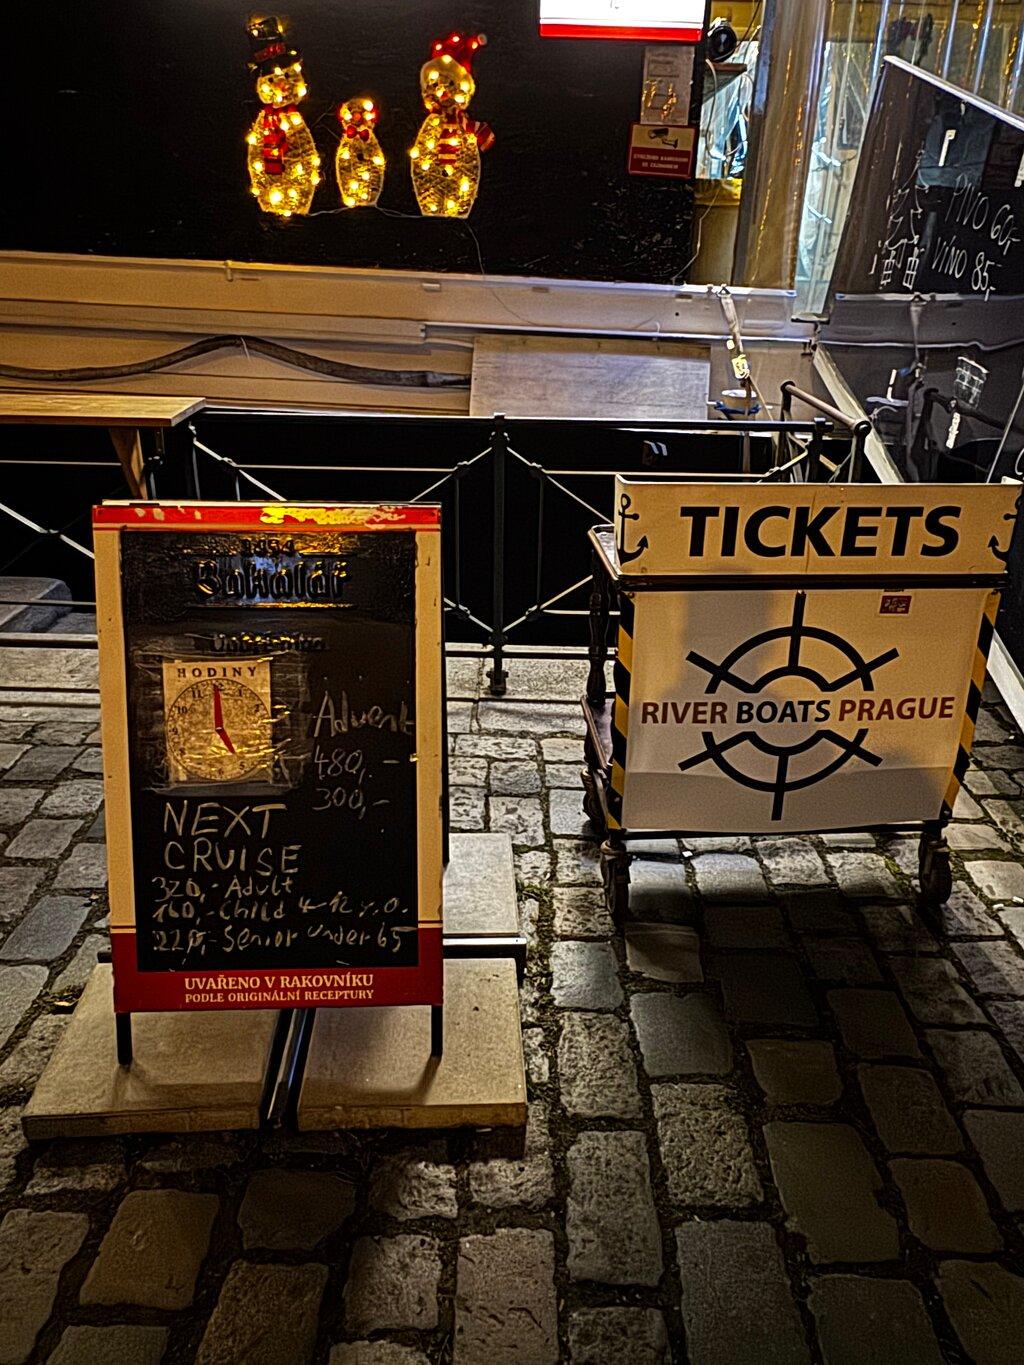 PIVO 60,-
VÍNO 85,-
TICKETS
RIVER BOATS PRAGUE
Bakalář
HODINY
Advent
480,-
300,-
NEXT
CRUISE
320,- Adult
160,- Child 4-12 y.o.
220,- Senior under 65
UVAŘENO V RAKOVNÍKU
PODLE ORIGINÁLNÍ RECEPTURY